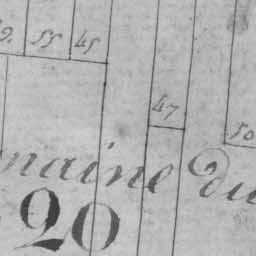 55 45
47
50
maine du
20